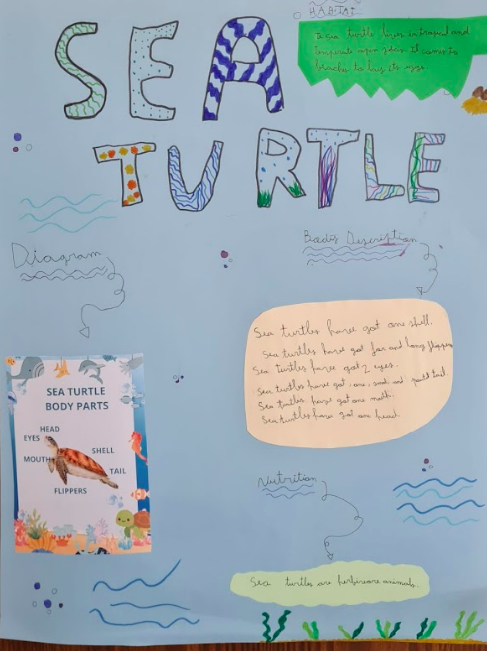 SEA
TURTLE
HABITAT
sea turtle lives in tropical and
temperate
beaches to lay its eggs.
Diagram
Body Description
Sea turtles have got one shell.
Sea turtles have got four and long flippers
Sea turtles have got 2 eyes.
Sea turtles have got one, small and tail
Sea turtles have got one moth.
Sea turtles have got one head.
SEA TURTLE
BODY PARTS
HEAD
EYES
MOUTH
SHELL
TAIL
FLIPPERS
Nutrition
Sea turtles are animals.